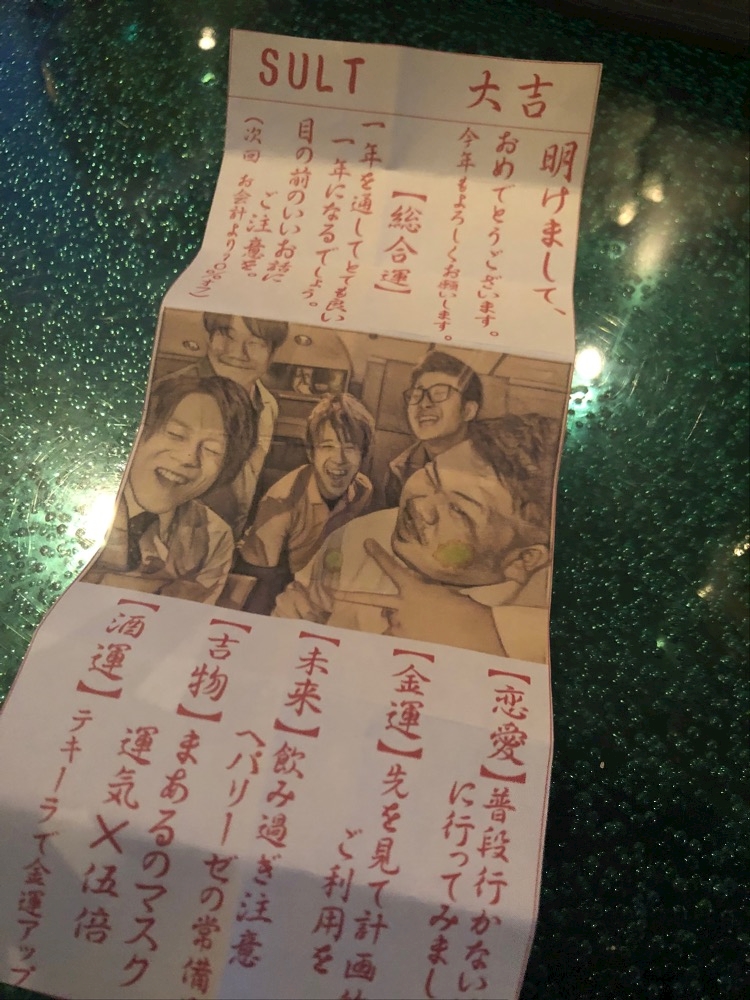 SULT 大吉
明けまして、
おめでとうございます。
今年もよろしくお願いします。
【総合運】
一年を通してとても良い
一年になるでしょう。
目の前のいいお話に
ご注意を。
（次回 お会計より10%オフ）
【恋愛】普段行かない
に行ってみまし
【金運】先を見て計画的
ご利用を
【未来】飲み過ぎ注意
ヘパリーゼの常備
【吉物】まあるのマスク
運気×伍倍
【酒運】テキーラで金運アップ